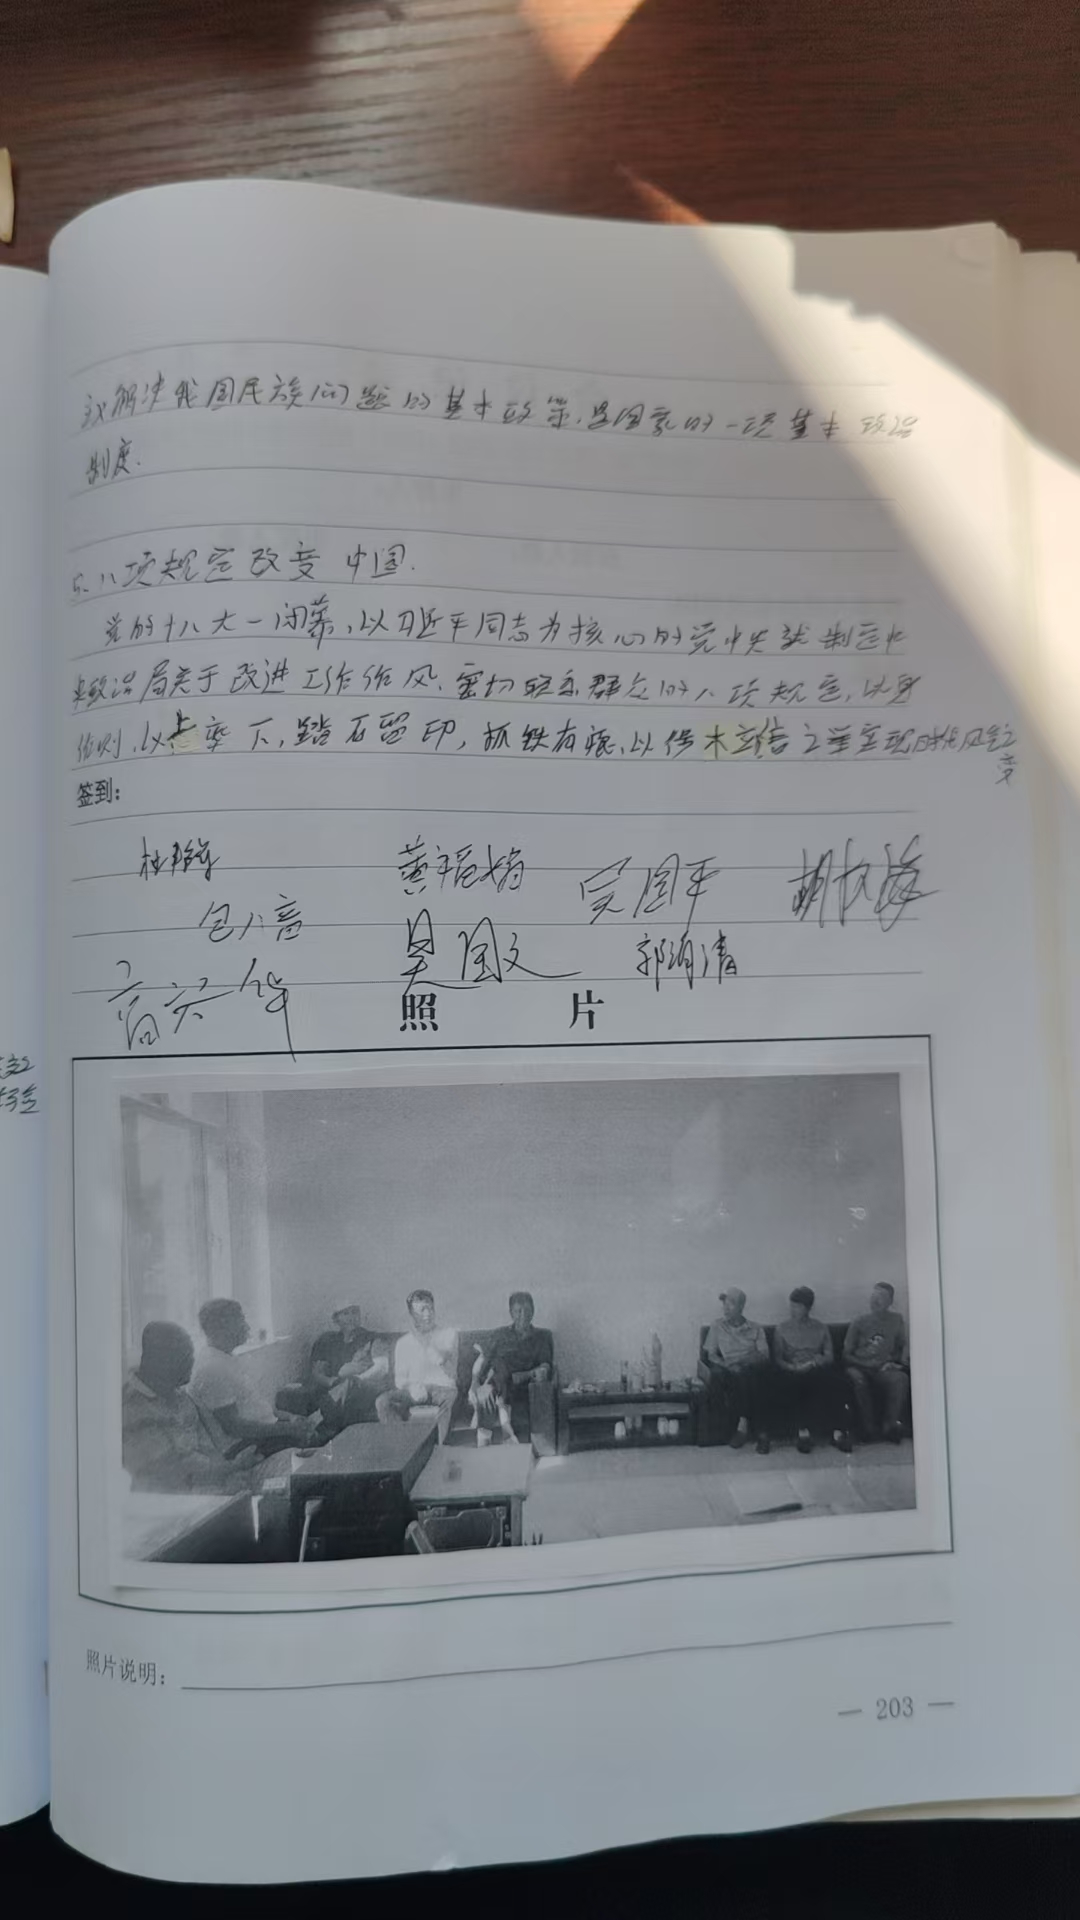 义解决我国民族问题的基本政策，是国家的一项基本政治
制度.
5. 八项规定改变中国.
党的十八大一闭幕，以习近平同志为核心的党中央就制定中
央政治局关于改进工作作风、密切联系群众的八项规定，以身
作则，以上率下，踏石留印，抓铁有痕，以徙木立信之举实现时代风气之
变
签到：
黄福娟 吴国平
包八音 吴国文 郭润清
高荣华
照 片
照片说明：
— 203 —